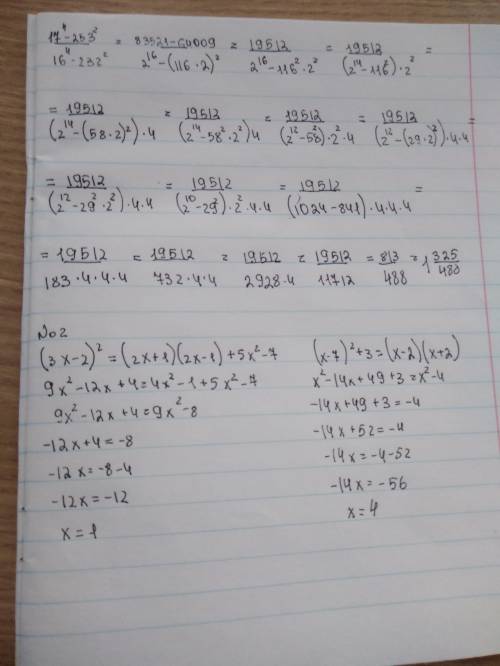 17⁴-253² / 16⁴·232² = 83521-64009 / 2¹⁶-(116·2)² = 19512 / 2¹⁶-116²·2² = 19512 / (2¹⁴-116²)·2² =
= 19512 / (2¹⁴-(58·2)²)·4 = 19512 / (2¹⁴-58²·2²)4 = 19512 / (2¹²-58²)·2²·4 = 19512 / (2¹²-(29·2)²)·4·4 =
= 19512 / (2¹²-29²·2²)·4·4 = 19512 / (2¹⁰-29²)·2²·4·4 = 19512 / (1024-841)·4·4·4 =
= 19512 / 183·4·4·4 = 19512 / 732·4·4 = 19512 / 2928·4 = 19512 / 11712 = 813 / 488 = 1 325/488
No2
(3x-2)² = (2x+1)(2x-1)+5x²-7
9x²-12x+4=4x²-1+5x²-7
9x²-12x+4=9x²-8
-12x+4=-8
-12x=-8-4
-12x=-12
x=1
(x-7)²+3=(x-2)(x+2)
x²-14x+49+3=x²-4
-14x+49+3=-4
-14x+52=-4
-14x=-4-52
-14x=-56
x=4